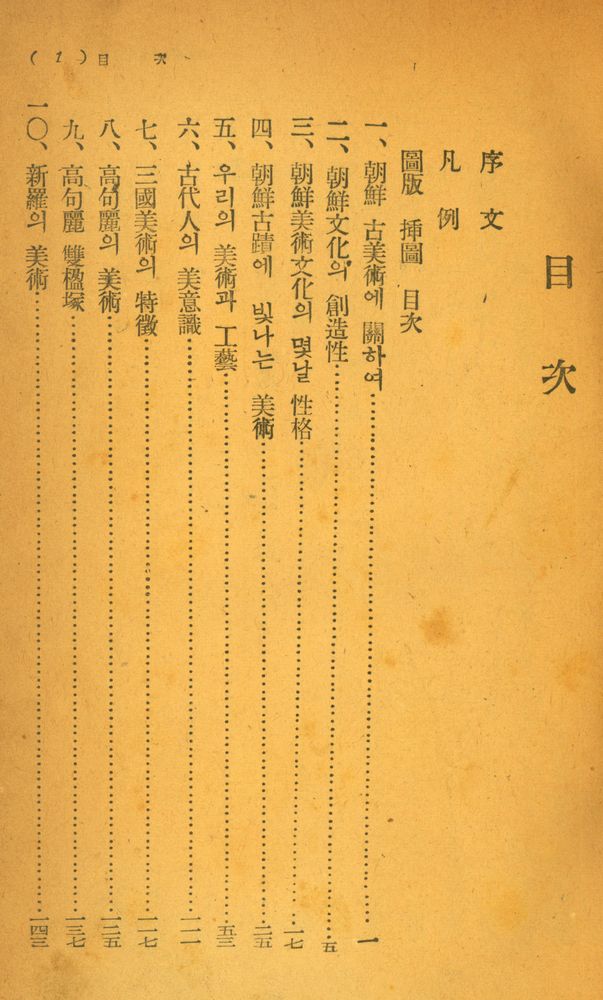 目次
序文
凡例
圖版 揷圖 目次
一、朝鮮 古美術에 關하여……一
二、朝鮮文化의 創造性……五
三、朝鮮美術文化의 몇낱 性格……一七
四、朝鮮古蹟에 빛나는 美術……二五
五、우리의 美術과 工藝……五三
六、古代人의 美意識……一一一
七、三國美術의 特徵……一一七
八、高句麗의 美術……一二五
九、高句麗 雙楹塚……一三七
一〇、新羅의 美術……一四三
(1) 目次